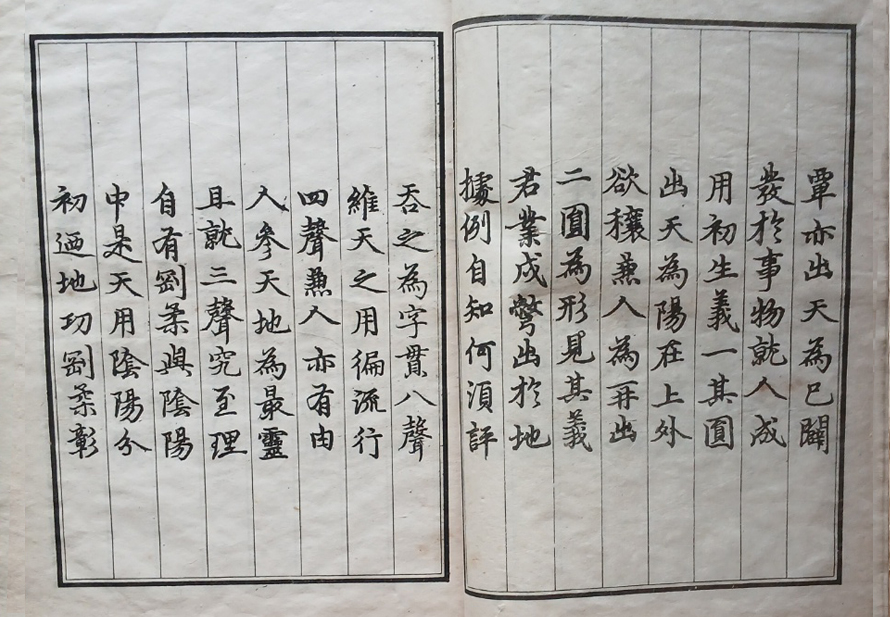 覃亦出天為已闢
發於事物就人成
用初生義一其圓
出天為陽在上外
欲穰兼人為再出
二圓為形見其義
君業戍彆出於地
據例自知何須評
吞之為字貫八聲
維天之用徧流行
四聲兼人亦有由
人參天地為最靈
且就三聲究至理
自有剛柔與陰陽
中是天用陰陽分
初迺地功剛柔彰